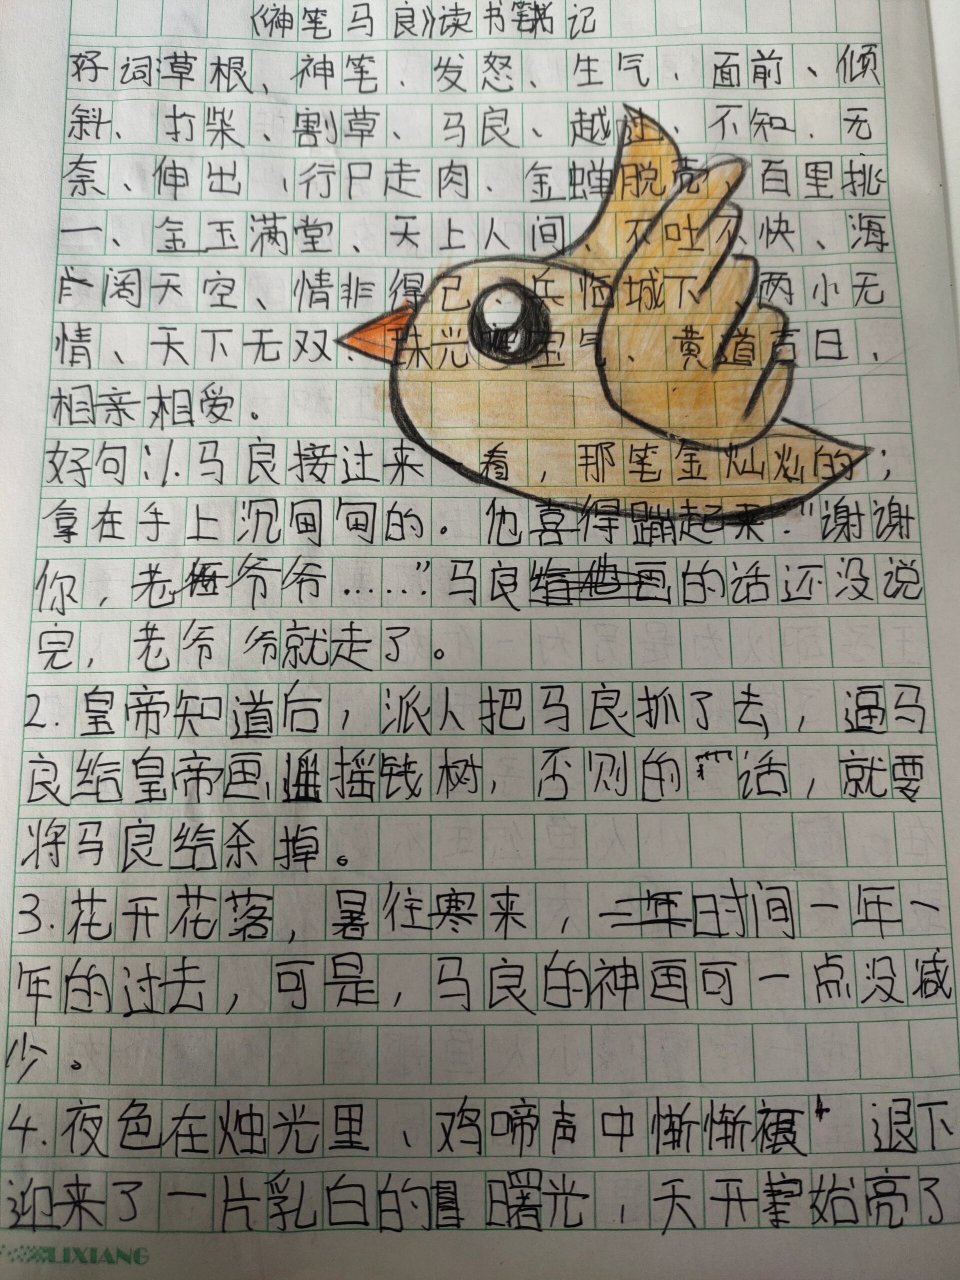 《神笔马良》读书笔记
好词草根、神笔、发怒、生气、面前、倾
斜、打柴、割草、马良、越过、不知、无
奈、伸出、行尸走肉、金蝉脱壳、百里挑
一、金玉满堂、天上人间、不吐不快、海
阔天空、情非得已、兵临城下、两小无
情、天下无双、珠光宝气、黄道吉日、
相亲相爱。
好句:1.马良接过来看，那笔金灿灿的；
拿在手上沉甸甸的。他喜得蹦起来:“谢谢
你，老爷爷……”马良的话还没说
完，老爷爷就走了。
2.皇帝知道后，派人把马良抓了去，逼马
良给皇帝画摇钱树，否则的话，就要
将马良给杀掉。
3.花开花落，暑往寒来，时间一年一
年的过去，可是，马良的神画可一点没减
少。
4.夜色在烛光里、鸡啼声中惭惭退下
迎来了一片乳白的曙光，天开始亮了
LIXIANG